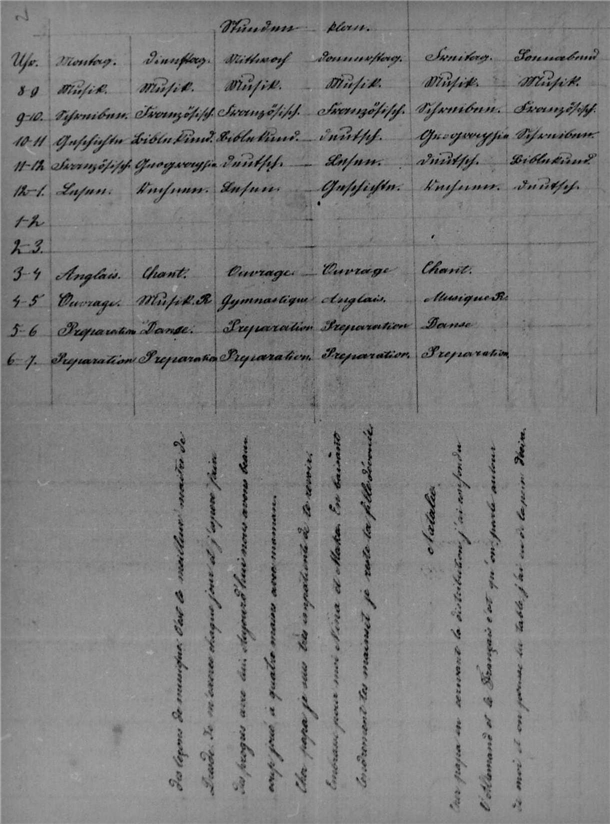 2
Stunden plan.
Uhr. Montag. Dienstag. Mittwoch Donnerstag. Freitag. Sonnabend
8-9 Musik. Musik. Musik. Musik. Musik. Musik.
9-10. Schreiben. Französisch. Französisch. Französisch. Schreiben. Französisch.
10-11 Geschichte Biblekund. Biblekund. Deutsch. Geographie Schreiben.
11-12 Französisch. Geographie Deutsch. Lesen. Deutsch. Biblekund.
12-1. Lesen. Rechnen. Lesen. Geschichte. Rechnen. Deutsch.
1-2
2-3.
3-4 Anglais. Chant. Ouvrage Ouvrage Chant.
4-5 Ouvrage. Musik. R Gymnastique Anglais. Musique R.
5-6 Preparation Danse. Preparation Preparation Danse
6-7. Preparation Preparation Preparation. Preparation. Preparation.
des leçons de musique. C'est le meilleur maître de
de chaque jour et j'espère faire
des progrès avec lui. Aujourd'hui nous avons beau
coup joué à quatre mains avec maman.
Cher papa je suis très impatiente de te revoir.
Embrasse pour moi Nina et Maka. En baisant
tendrement tes mains je reste ta fille dévouée
Natalie.
Cher papa en la distribution j'ai confondu
l'Allemand et le Français c'est qu'on parle autour
de moi et on pousse la table j'ai